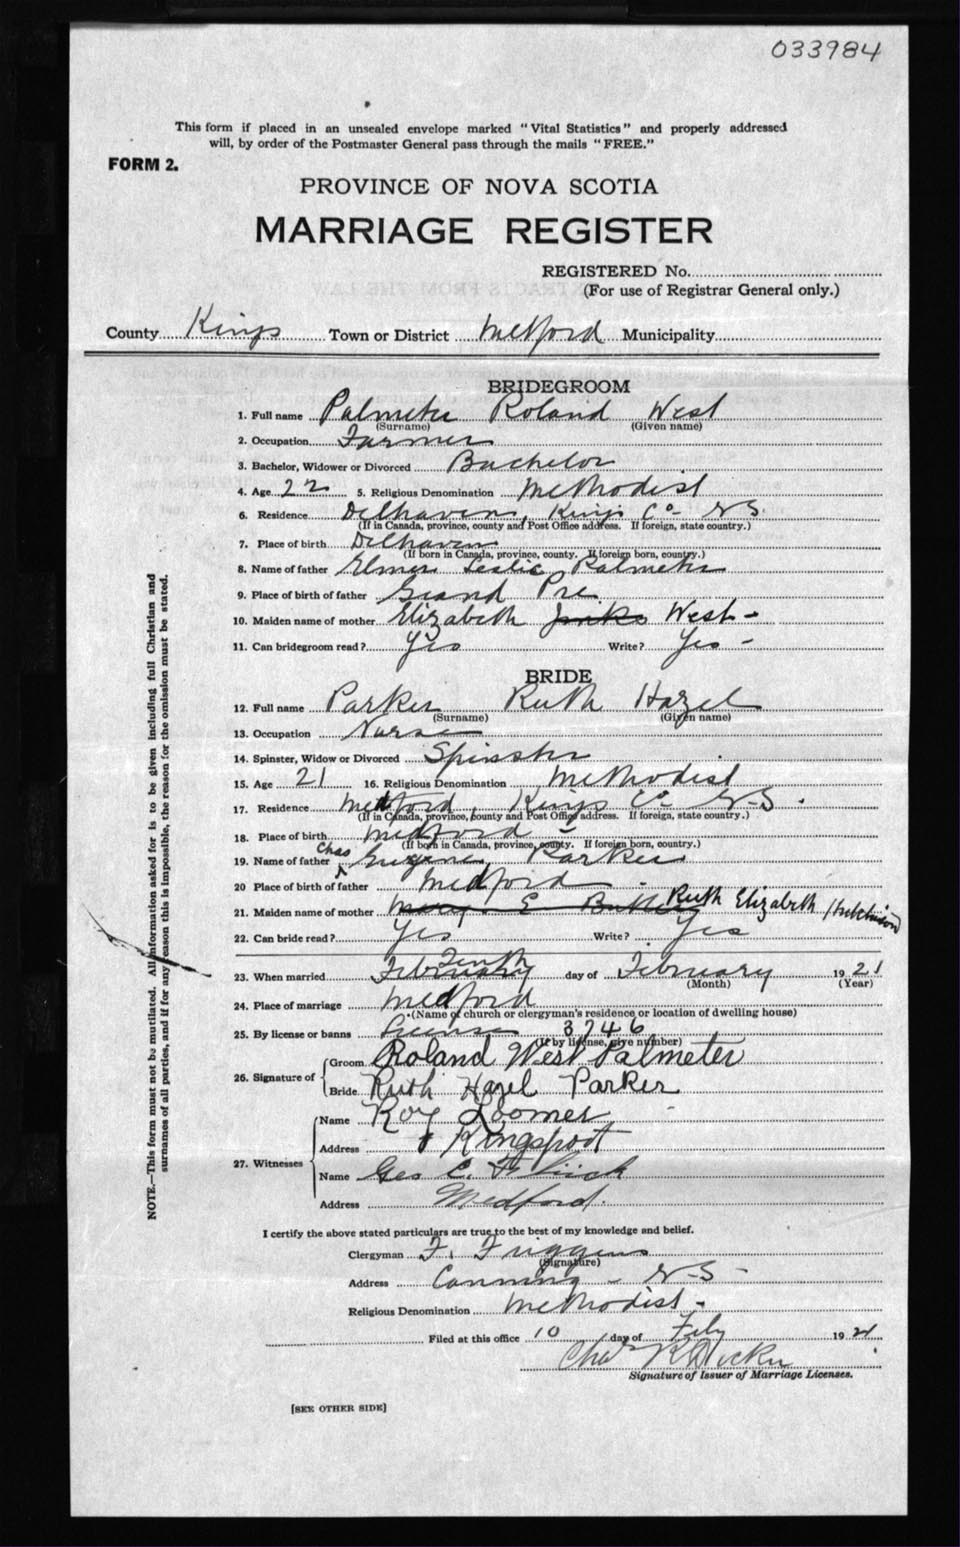 033984
This form if placed in an unsealed envelope marked "Vital Statistics" and properly addressed
will, by order of the Postmaster General pass through the mails "FREE."
FORM 2.
PROVINCE OF NOVA SCOTIA
MARRIAGE REGISTER
REGISTERED No.
(For use of Registrar General only.)
County Kings Town or District Medford Municipality
BRIDEGROOM
1. Full name Palmeter Roland West
(Surname) (Given name)
2. Occupation Farmer
3. Bachelor, Widower or Divorced Bachelor
4. Age 22 5. Religious Denomination Methodist
6. Residence Delhaven, Kings Co. N.S.
(If in Canada, province, county and Post Office address. If foreign, state country.)
7. Place of birth Delhaven
(If born in Canada, province, county. If foreign born, country.)
8. Name of father Elmer Leslie Palmeter
9. Place of birth of father Grand Pre
10. Maiden name of mother Elizabeth West -
11. Can bridegroom read? Yes Write? Yes -
BRIDE
12. Full name Parker Ruth Hazel
(Surname) (Given name)
13. Occupation Nurse
14. Spinster, Widow or Divorced Spinster
15. Age 21 16. Religious Denomination Methodist
17. Residence Medford, Kings Co. N.S.
(If in Canada, province, county and Post Office address. If foreign, state country.)
18. Place of birth Medford
(If born in Canada, province, county. If foreign born, country.)
19. Name of father Chas Eugene Parker
20 Place of birth of father Medford
21. Maiden name of mother Mary E Ruth Elizabeth Hutchinson
22. Can bride read? Yes Write? Yes
23. When married Tenth February day of February 1921
(Month) (Year)
24. Place of marriage Medford
(Name of church or clergyman's residence or location of dwelling house)
25. By license or banns License 3746
(If by license, give number)
26. Signature of Groom Roland West Palmeter
Bride Ruth Hazel Parker
27. Witnesses Name Roy Loomer
Address Kingsport
Name Geo C.
Address Medford.
I certify the above stated particulars are true to the best of my knowledge and belief.
Clergyman F. Friggens
(Signature)
Address Canning - N-S -
Religious Denomination Methodist -
Filed at this office 10 day of Feby 1921
Chas R
Signature of Issuer of Marriage Licenses.
[SEE OTHER SIDE]
NOTE.—This form must not be mutilated. All information asked for is to be given including full Christian and
surnames of all parties, and if for any reason this is impossible, the reason for the omission must be stated.